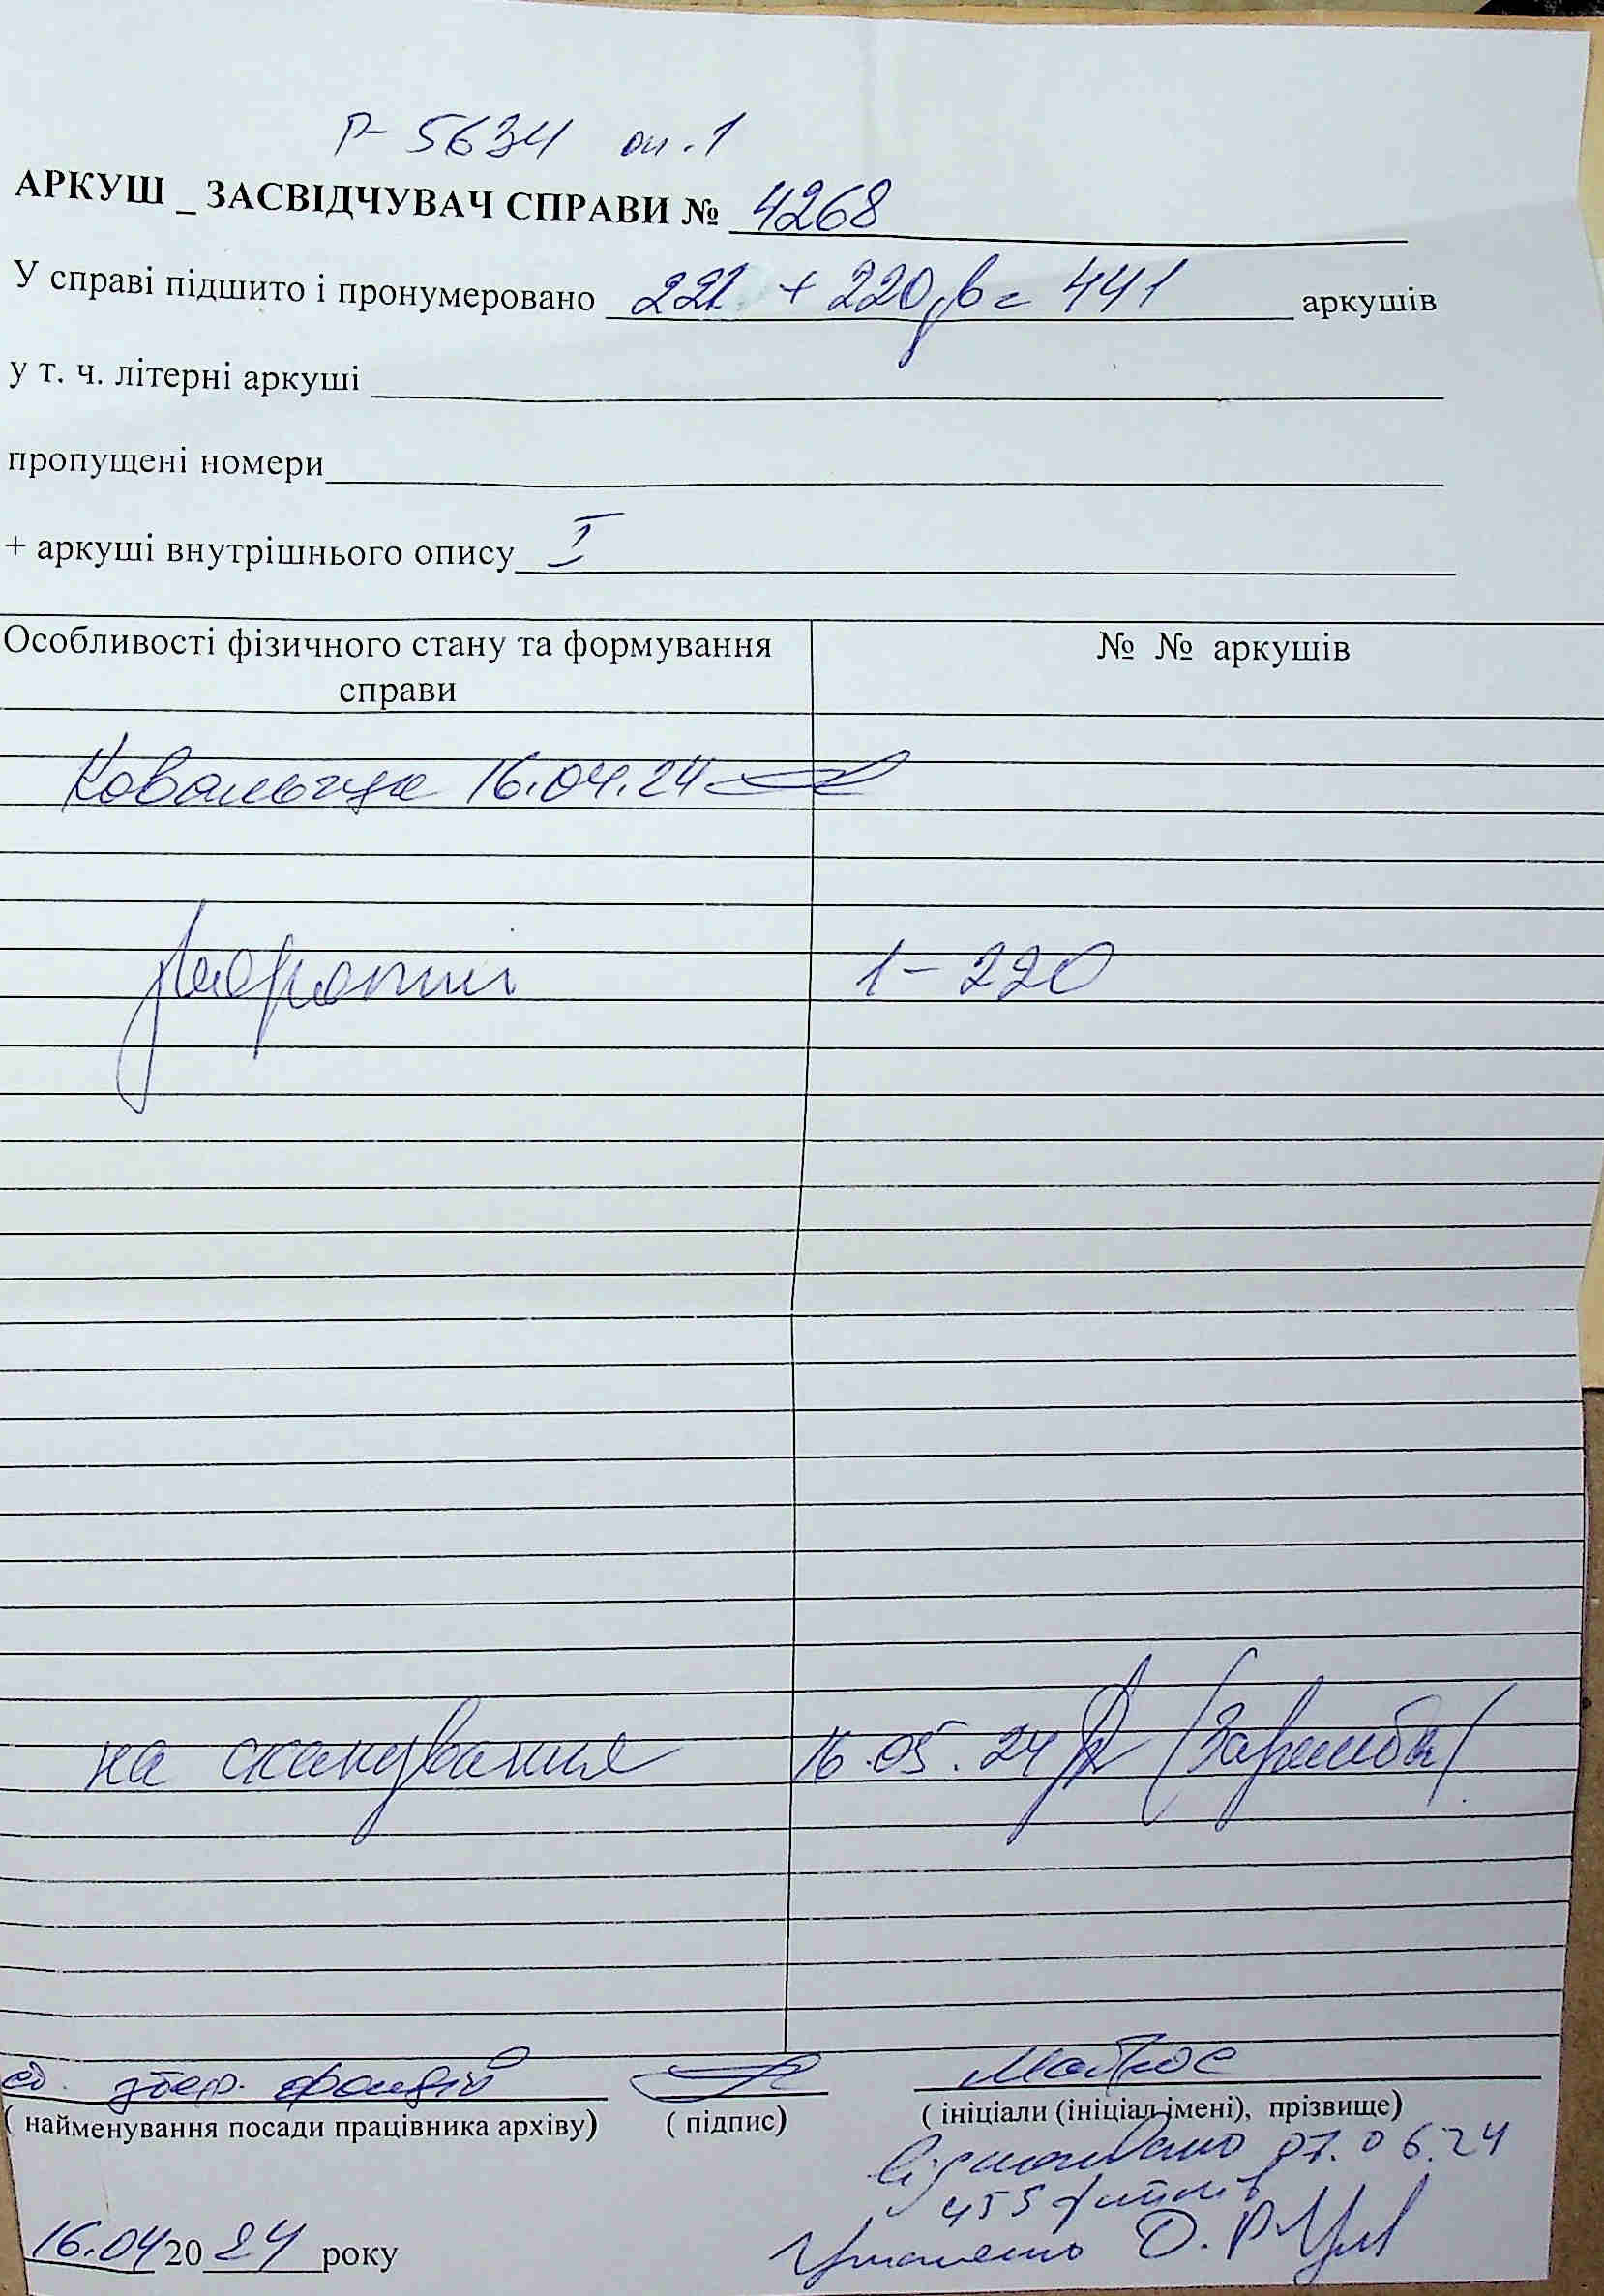 Р-5634 оп.1
АРКУШ _ ЗАСВІДЧУВАЧ СПРАВИ № 4268
У справі підшито і пронумеровано 221 + 220 = 441 аркушів
у т. ч. літерні аркуші
пропущені номери
+ аркуші внутрішнього опису I
Особливості фізичного стану та формування справи
№ № аркушів
16.04.24
1-220
на сканування 16.05.24
збер. фондів
( найменування посади працівника архіву) ( підпис) ( ініціали (ініціал імені), прізвище)
Відскановано 07.06.24
455 файлів
16.04 2024 року